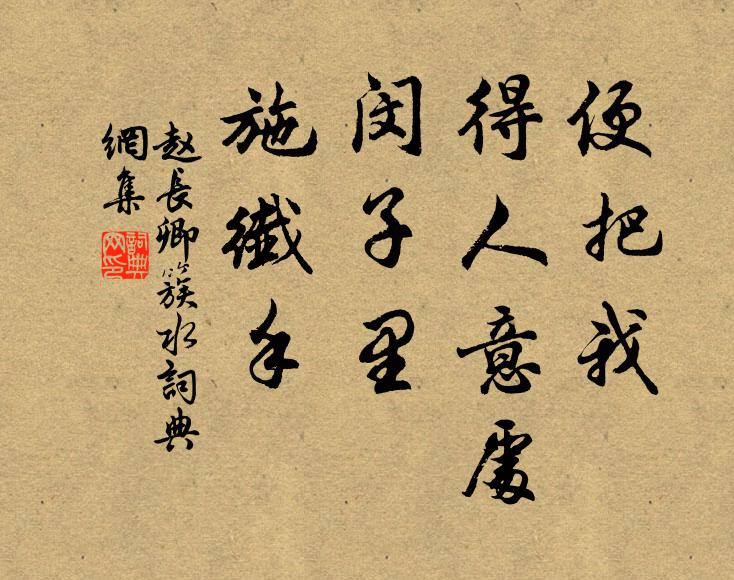 便把我
得人意處
闵子里
施纖手
趙長卿簇水詞典
網集
詞典網印